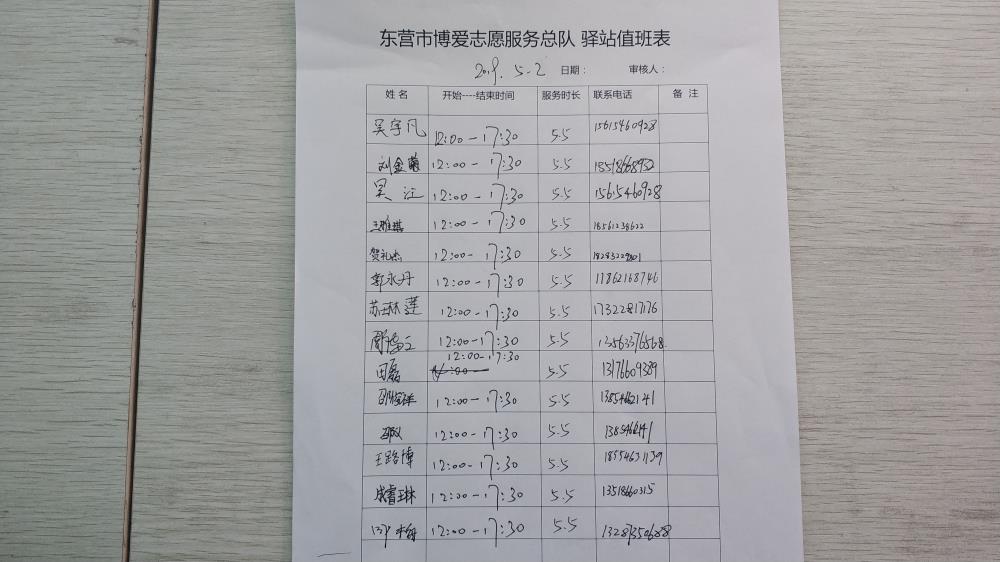 东营市博爱志愿服务总队 驿站值班表
2019. 5-2 日期： 审核人：
姓名 开始----结束时间 服务时长 联系电话 备 注
吴宇凡 12:00-17:30 5.5 15615460928
刘金 12:00-17:30 5.5
吴江 12:00-17:30 5.5 15615460928
王雅琪 12:00-17:30 5.5 18561238622
贺礼杰 12:00-17:30 5.5
郭永丹 12:00-17:30 5.5 11862168746
苏琳莲 12:00-17:30 5.5 17322817176
12:00-17:30 5.5 13563376568
12:00-17:30
田磊 5.5 13176609389
12:00-17:30 5.5 13854662141
12:00-17:30 5.5
王路博 12:00-17:30 5.5 18554631139
成睿琳 12:00-17:30 5.5 13518660315
12:00-17:30 5.5 13287350688